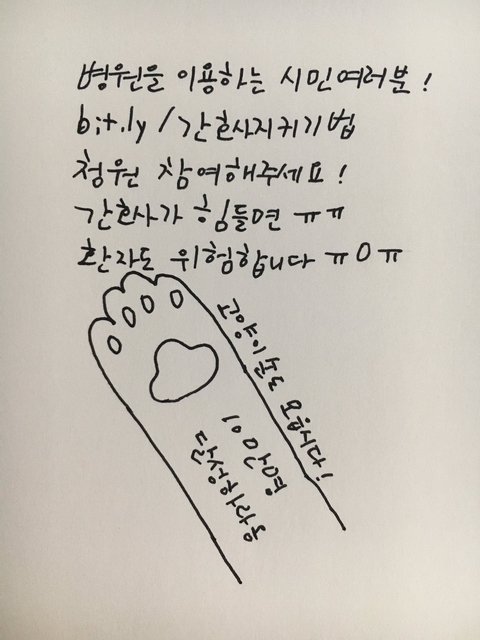 병원을 이용하는 시민여러분!
bit.ly/간호사지키기법
청원 참여해주세요!
간호사가 힘들면 ㅠㅠ
환자도 위험합니다 ㅠㅇㅠ
고양이 손도 모읍시다!
10만명
달성하라옹